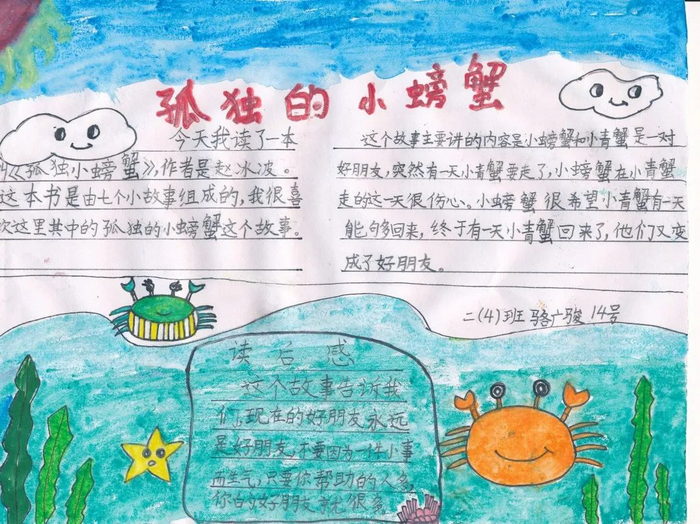 孤独的小螃蟹
今天我读了一本
叫《孤独小螃蟹》,作者是赵冰波。
这本书是由七个小故事组成的,我很喜
欢这里其中的孤独的小螃蟹这个故事。
这个故事主要讲的内容是小螃蟹和小青蟹是一对
好朋友,突然有一天小青蟹要走了,小螃蟹在小青蟹
走的这一天很伤心。小螃蟹很希望小青蟹有一天
能够多回来,终于有一天小青蟹回来了,他们又变
成了好朋友。
二(4)班 骆广骏 14号
读后感
这个故事告诉我
们,现在的好朋友永远
是好朋友,不要因为一件小事
而生气,只要你帮助的人多,
你的好朋友就很多。